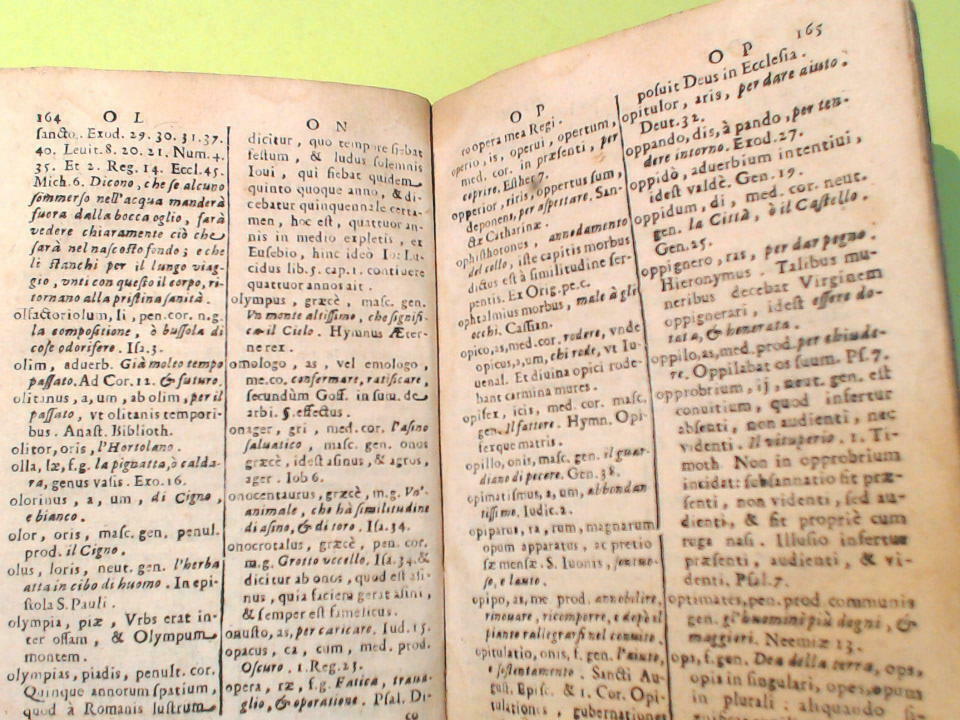 164 O L
sancto. Exod. 29. 30. 31. 37.
40. Leuit. 8. 20. 21. Num. 4.
35. Et 2. Reg. 14. Eccl. 45.
Mich. 6. Dicono, che se alcuno
sommerso nell'acqua manderà
fuora dalla bocca oglio, farà
vedere chiaramente ciò che
sarà nel nascosto fondo; e che
li stanchi per il lungo viag-
gio, vnti con questo il corpo, ri-
tornano alla pristina sanità.
olfactoriolum, li, pen. cor. n. g.
la compositione, ò bussola di
cose odorifere. Isa. 3.
olim, aduerb. Già molto tempo
passato. Ad Cor. 12. & futuro.
olitanus, a, um, ab olim, per il
passato, vt olitanis tempori-
bus. Anast. Biblioth.
olitor, oris, l'Hortolano.
olla, læ, f. g. la pignatta, ò calda-
ra, genus vasis. Exo. 16.
olorinus, a, um, di Cigno,
e bianco.
olor, oris, masc. gen. penul.
prod. il Cigno.
olus, loris, neut. gen. l'herba
atta in cibo di huomo. In epi-
stola S. Pauli.
olympia, piæ, Vrbs erat in-
ter ossam, & Olympum
montem.
olympias, piadis, penult. cor.
Quinque annorum spatium,
quod à Romanis lustrum
O N
dicitur, quo tempore fiebat
festum, & ludus solemnis
Ioui, qui fiebat quidem
quinto quoque anno, & di-
cebatur quinquennale certa-
men, hoc est, quattuor an-
nis in medio expletis, ex
Eusebio, hinc ideò Io: Lu-
cidus lib. 5. cap. 1. continere
quattuor annos ait.
olympus, græcè, masc. gen.
Vn monte altissimo, che signifi-
ca il Cielo. Hymnus Æter-
ne rex.
omologo, as, vel emologo,
me. co. confermare, ratificare,
secundùm Goff. in sum. de
arbi. §. effectus.
onager, gri, med. cor. l'asino
saluatico, masc. gen. onos
græcè, idest asinus, & agros,
ager. Iob 6.
onocentaurus, græcè, m. g. Vn'
animale, che hà similitudine
di asino, & di toro. Isa. 34.
onocrotalus, græcè, pen. cor.
m. g. Grotto vccello. Isa. 34. &
dicitur ab onos, quod est asi-
nus, quia faciem gerat asini,
& semper est famelicus.
onusto, as, per caricare. Iud. 15.
opacus, ca, cum, med. prod.
Oscuro. 1. Reg. 23.
opera, ræ, f. g. Fatica, traua-
glio, & operatione. Psal. Di-
co
O P
co opera mea Regi.
operio, is, operui, opertum,
med. cor. in præsenti, per
coprire. Esther 7.
opperior, riris, oppertus sum,
deponens, per aspettare. San-
ctæ Catharinæ.
ophisthotones, annodamento
del collo, iste capitis morbus
dictus est à similitudine ser-
pentis. Ex Orig. pe. c.
ophtalmius morbus, male à gli
occhi. Cassian.
opico, as, med. cor. rodere, vnde
opicus, a, um, chi rode, vt Iu-
uenal. Et diuina opici rode-
bant carmina mures.
opifex, icis, med. cor. masc.
gen. Il fattore. Hymn. Opi-
fexque matris.
opilio, onis, masc. gen. il guar-
diano di pecore. Gen. 38.
opimatismus, a, um, abbondan
tissimo. Iudic. 2.
opiparus, ra, rum, magnarum
opum apparatus, ac pretio
sæ mensæ. S. Iuonis, sontuo-
so, e lauto.
opipo, as, me. prod. annobilire,
rinouare, ricomporre, e dopò il
pianto rallegrarsi nel conuito.
opitulatio, onis, f. gen. l'aiuto,
e sostentamento. Sancti Au-
gust. Episc. & 1. Cor. Opi-
tulationes, gubernationes
O P 165
posuit Deus in Ecclesia.
opitulor, aris, per dare aiuto.
Deut. 32.
oppando, dis, à pando, per ten-
dere intorno. Exod. 27.
oppidò, aduerbium intentiui,
idest valdè. Gen. 19.
oppidum, di, med. cor. neut.
gen. la Città, ò il Castello.
Gen. 25.
oppignero, ras, per dar pegno.
Hieronymus. Talibus mu-
neribus decebat Virginem
oppignerari, idest essere do-
tata, & honorata.
oppilo, as, med. prod. per chiude-
re. Oppilabat os suum. Ps. 7.
opprobrium, ij, neut. gen. est
conuitium, quod infertur
absenti, non audienti, nec
videnti. Il vituperio. 1. Ti-
moth. Non in opprobrium
incidat: subsannatio fit præ-
senti, non videnti, sed au-
dienti, & fit propriè cum
ruga nasi. Illusio infertur
præsenti, audienti, & vi-
denti. Psal. 7.
optimates, pen. prod. communis
gen. gl'huomini più degni, &
maggiori. Neemiæ 13.
ops, f. gen. Dea della terra, ops,
opis in singulari, opes, opum
in plurali: aliquando